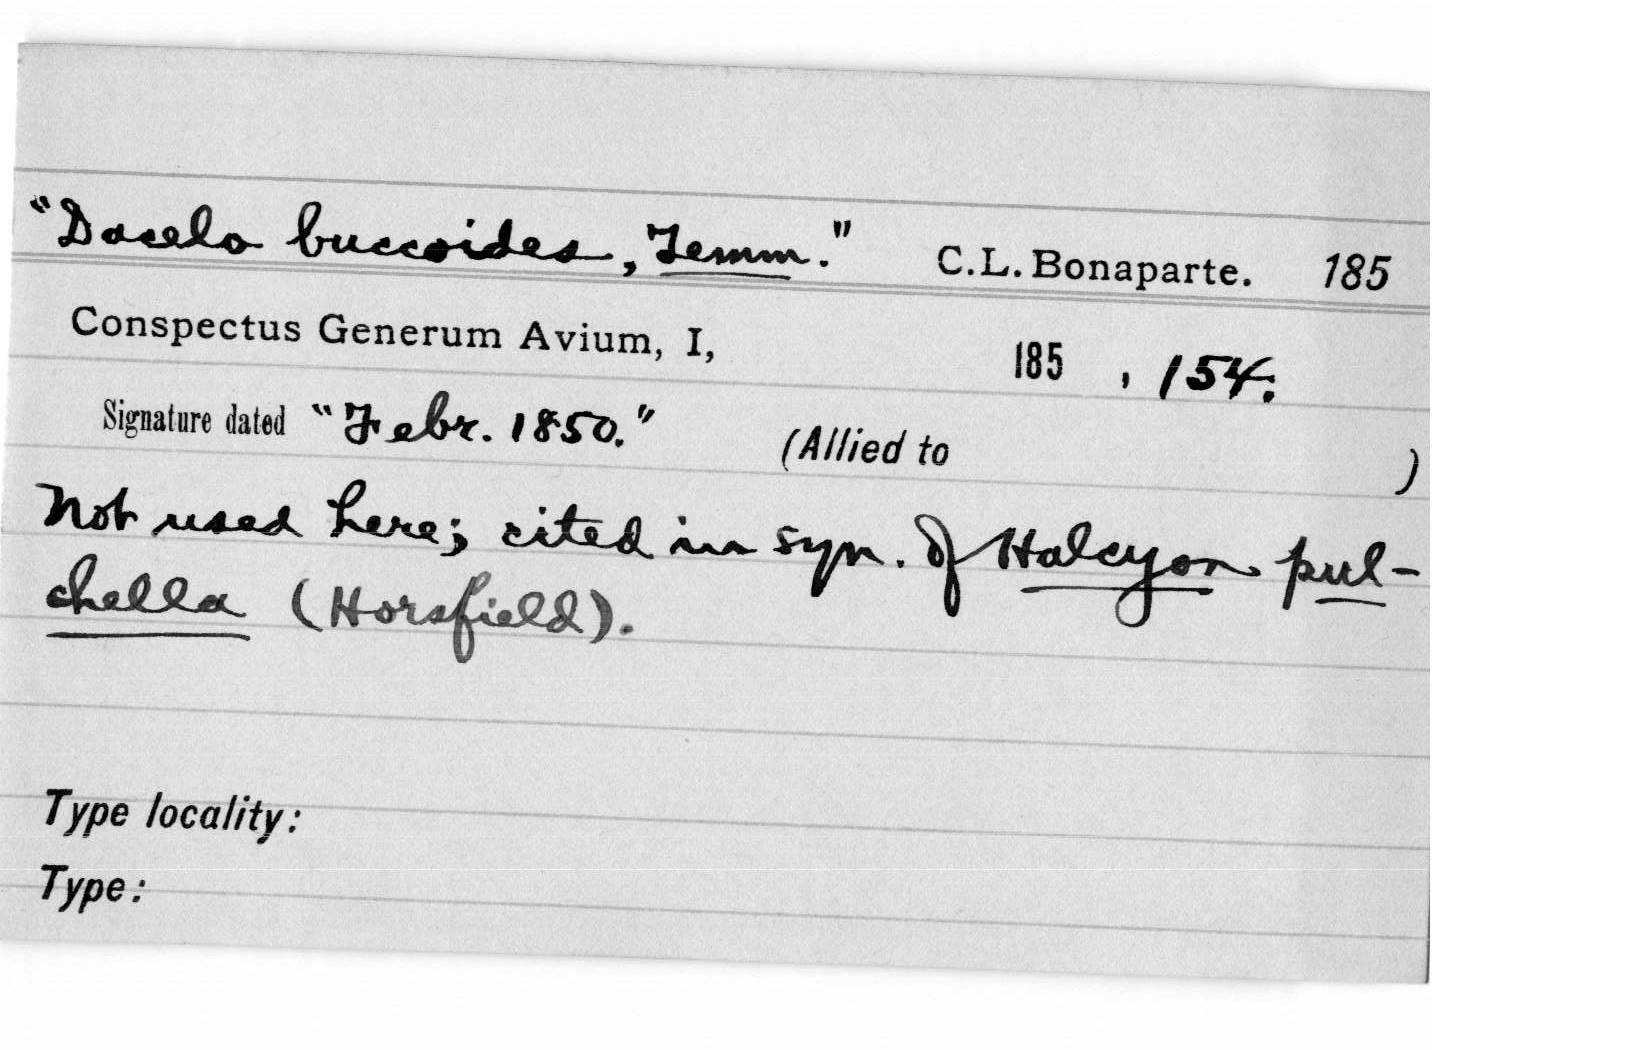 "Dacelo buccoides, Temm." C.L. Bonaparte. 185
Conspectus Generum Avium, I, 185 , 154.
Signature dated "Febr. 1850." (Allied to )
Not used here; cited in syn. of Halcyon pul-
chella (Horsfield).
Type locality:
Type: